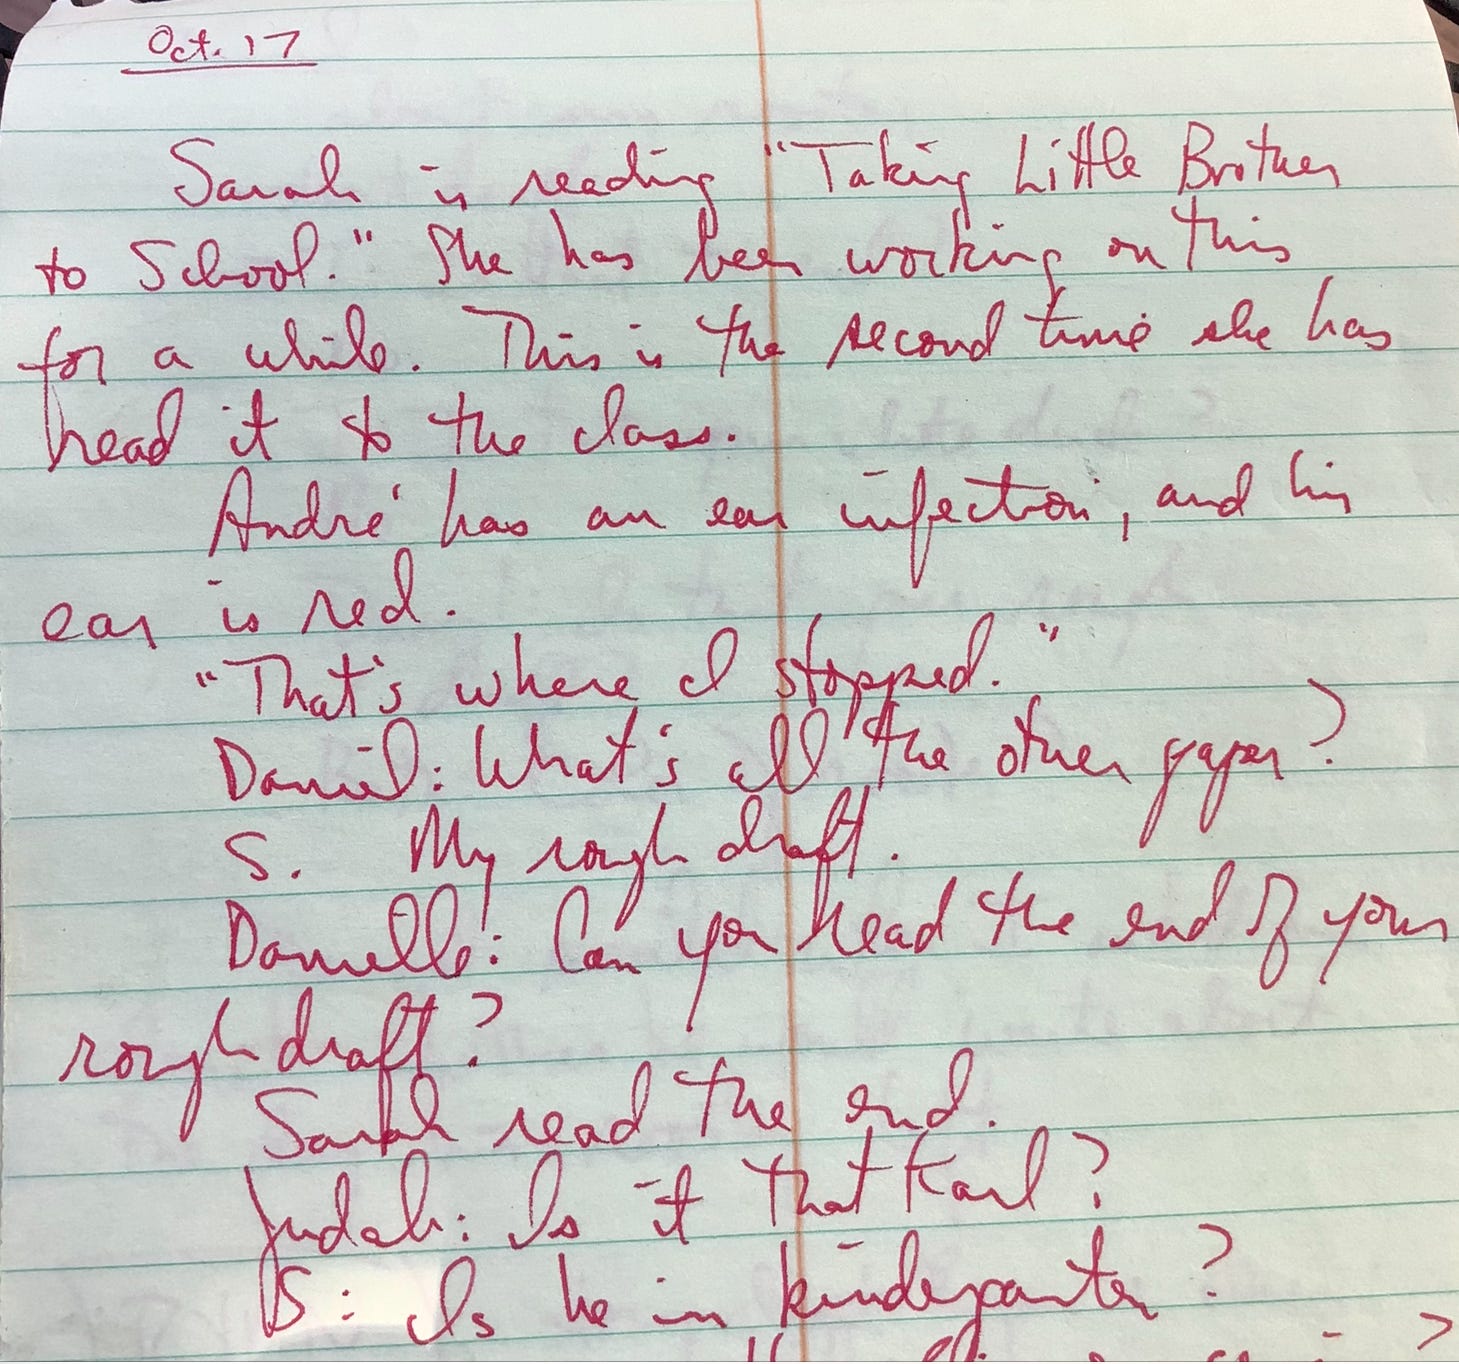 Oct. 17
Sarah is reading "Taking Little Brother
to School." She has been working on this
for a while. This is the second time she has
read it to the class.
André has an ear infection, and his
ear is red.
"That's where I stopped."
Daniel: What's all the other paper?
S. My rough draft.
Danielle: Can you read the end of your
rough draft?
Sarah read the end.
Judah: Is it that Karl?
S: Is he in kindergarten?